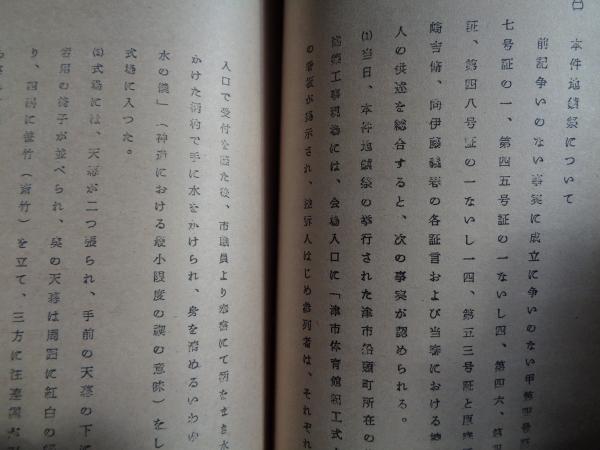 本件地鎮祭について
前記争いのない事実に成立に争いのない甲第
七号証の一、第四五号証の一ないし四、第四六、第
証、第四八号証の一ないし一四、第五三号証と原審
崎吉脩、同伊藤 の各証言および当審における
人の供述を綜合すると、次の事実が認められる。
(1)当日、本件地鎮祭の挙行された津市船頭町所在の
館起工事現場には、会場入口に「津市体育館起工式
の看板が掲示され、控訴人はじめ参列者は、それぞれ
入口で受付を了た後、市職員より 新たまき水
かけた 杓で手に水をかけられ、身を清めるいわゆ
水の儀」(神道における最小限度の禊の意味)をし
式場に入つた。
(2)式場には、天幕が二つ張られ、手前の天幕の下に
の椅子が並べられ、奥の天幕は周囲に紅白の
り、四隅に笹竹(斎竹)を立て、三方に注連